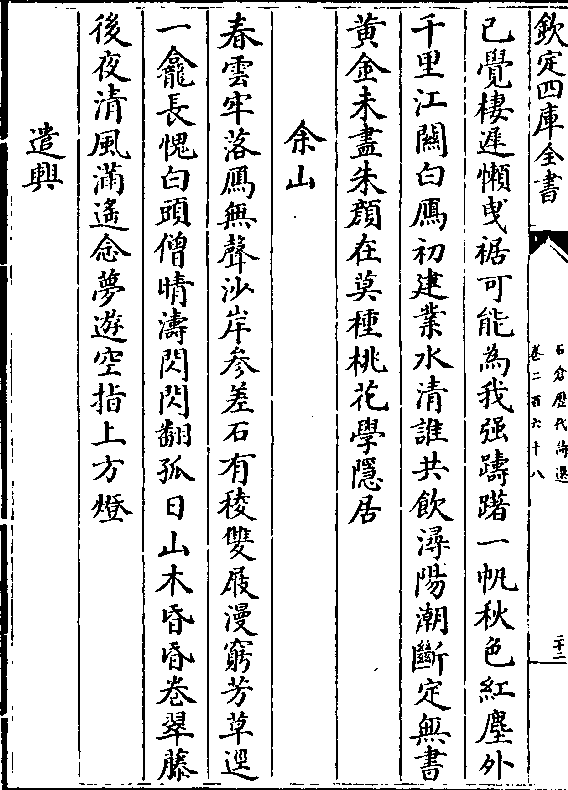 欽定四庫全書
石倉歷代詩選
卷二百六十八
二十二
已覺棲遲懶曳裾可能為我强躊躇一帆秋色紅塵外
千里江關白鴈初建業水清誰共飲潯陽潮斷定無書
黄金未盡朱顔在莫種桃花學隱居
余山
春雲牢落鴈無聲沙岸參差石有稜雙屐漫窮芳草逕
一龕長愧白頭僧晴濤閃閃翻孤日山木昏昏卷翠藤
後夜清風滿遙念夢遊空指上方燈
遣興